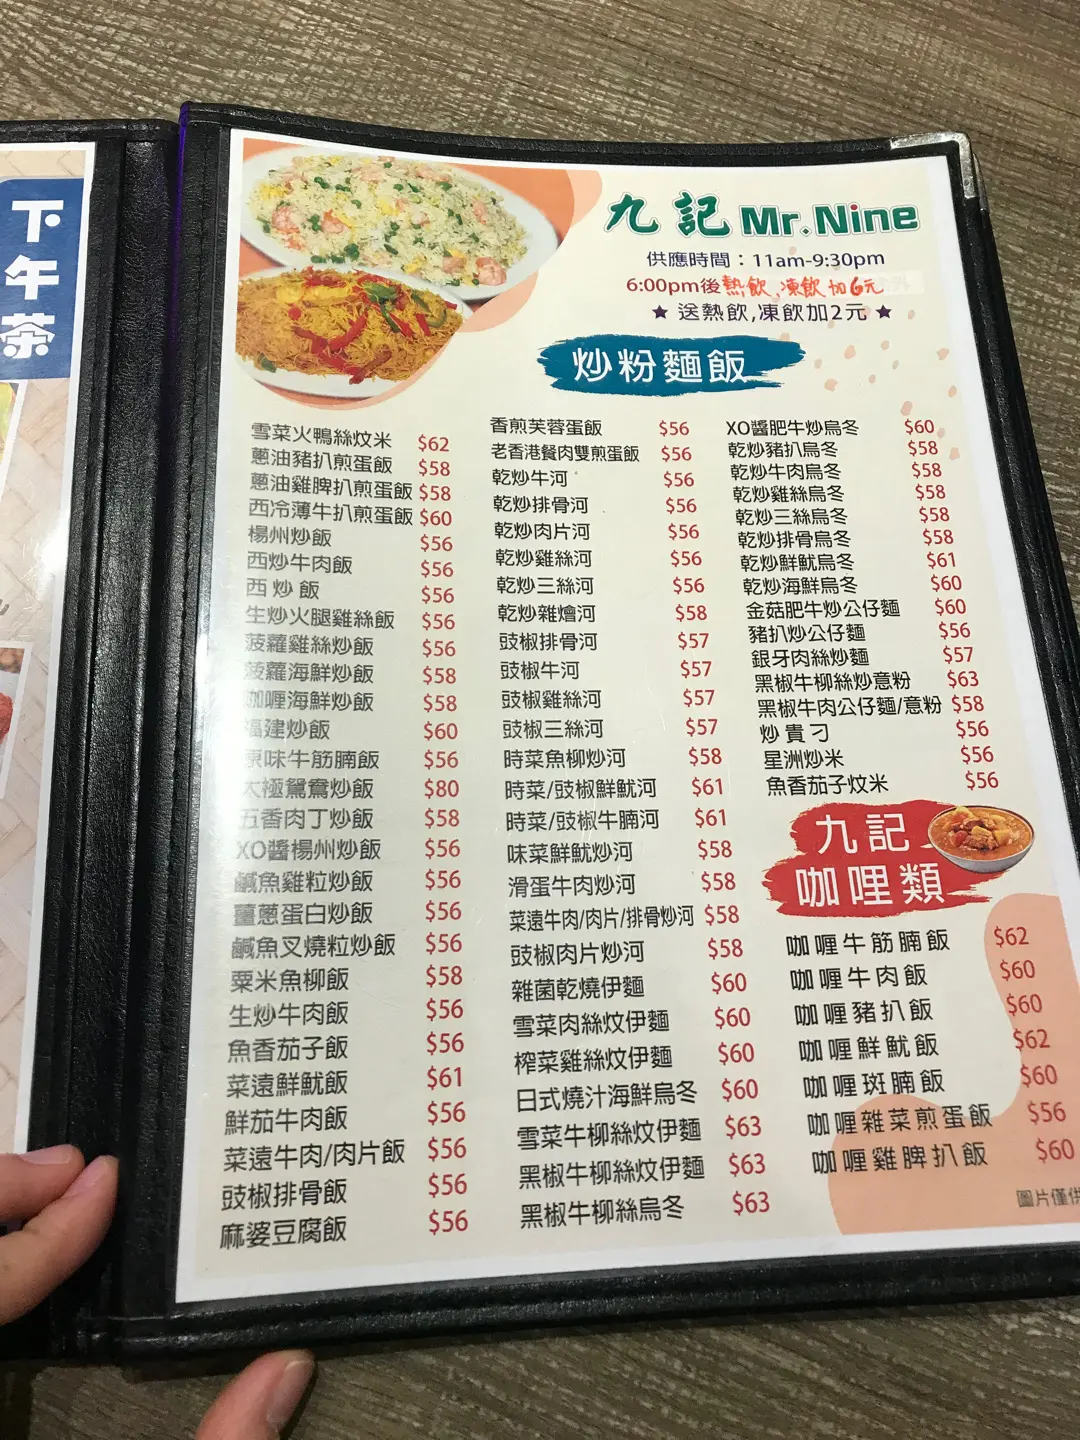 下午茶
九記 Mr. Nine
供應時間：11am-9:30pm
6:00pm後熱飲,凍飲加6元
★ 送熱飲,凍飲加2元 ★
炒粉麵飯
雪菜火鴨絲炆米 $62
蔥油豬扒煎蛋飯 $58
蔥油雞脾扒煎蛋飯 $58
西冷薄牛扒煎蛋飯 $60
楊州炒飯 $56
西炒牛肉飯 $56
西炒飯 $56
生炒火腿雞絲飯 $56
菠蘿雞絲炒飯 $56
菠蘿海鮮炒飯 $58
咖喱海鮮炒飯 $58
福建炒飯 $60
原味牛筋腩飯 $56
太極鴛鴦炒飯 $80
五香肉丁炒飯 $58
XO醬楊州炒飯 $56
鹹魚雞粒炒飯 $56
薑蔥蛋白炒飯 $56
鹹魚叉燒粒炒飯 $56
粟米魚柳飯 $58
生炒牛肉飯 $56
魚香茄子飯 $56
菜遠鮮魷飯 $61
鮮茄牛肉飯 $56
菜遠牛肉/肉片飯 $56
豉椒排骨飯 $56
麻婆豆腐飯 $56
香煎芙蓉蛋飯 $56
老香港餐肉雙煎蛋飯 $56
乾炒牛河 $56
乾炒排骨河 $56
乾炒肉片河 $56
乾炒雞絲河 $56
乾炒三絲河 $56
乾炒雜燴河 $58
豉椒排骨河 $57
豉椒牛河 $57
豉椒雞絲河 $57
豉椒三絲河 $57
時菜魚柳炒河 $58
時菜/豉椒鮮魷河 $61
時菜/豉椒牛腩河 $61
味菜鮮魷炒河 $58
滑蛋牛肉炒河 $58
菜遠牛肉/肉片/排骨炒河 $58
豉椒肉片炒河 $58
雜菌乾燒伊麵 $60
雪菜肉絲炆伊麵 $60
榨菜雞絲炆伊麵 $60
日式燒汁海鮮烏冬 $60
雪菜牛柳絲炆伊麵 $63
黑椒牛柳絲炆伊麵 $63
黑椒牛柳絲烏冬 $63
XO醬肥牛炒烏冬 $60
乾炒豬扒烏冬 $58
乾炒牛肉烏冬 $58
乾炒雞絲烏冬 $58
乾炒三絲烏冬 $58
乾炒排骨烏冬 $58
乾炒鮮魷烏冬 $61
乾炒海鮮烏冬 $60
金菇肥牛炒公仔麵 $60
豬扒炒公仔麵 $56
銀牙肉絲炒麵 $57
黑椒牛柳絲炒意粉 $63
黑椒牛肉公仔麵/意粉 $58
炒貴刁 $56
星洲炒米 $56
魚香茄子炆米 $56
九記
咖哩類
咖喱牛筋腩飯 $62
咖喱牛肉飯 $60
咖喱豬扒飯 $60
咖喱鮮魷飯 $62
咖喱斑腩飯 $60
咖喱雜菜煎蛋飯 $56
咖喱雞脾扒飯 $60
圖片僅供